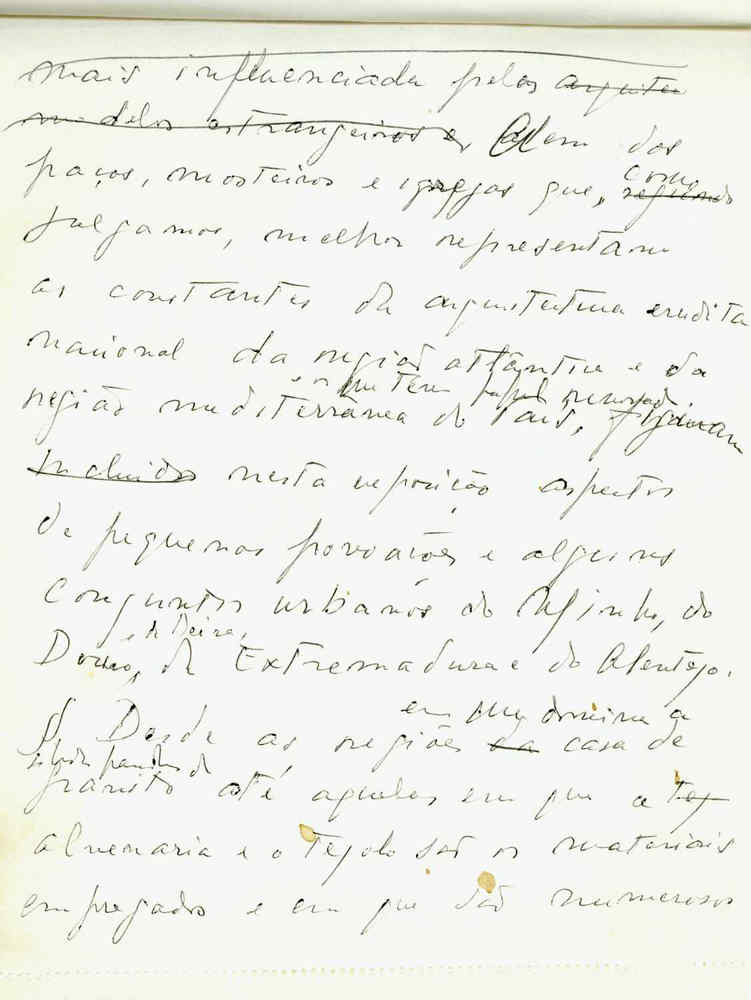 mais influenciada pelos arquite
modelos estrangeiros e, Além dos
como
paços, mosteiros e igrejas que, segundo
julgamos, melhor representam
as constantes da arquitectura erudita
nacional da região atlântica e da
que têm
região mediterrânea do País, figuram
incluidos nesta exposição aspectos
de pequenas povoações e alguns
conjuntos urbanos do Minho, do
e da Beira,
Douro, da Extremadura e do Alentejo.
em que domina a
Desde as regiões da casa de
granito até aquelas em que a tij
alvenaria e o tijolo são os materiais
empregados e em que são numerosos